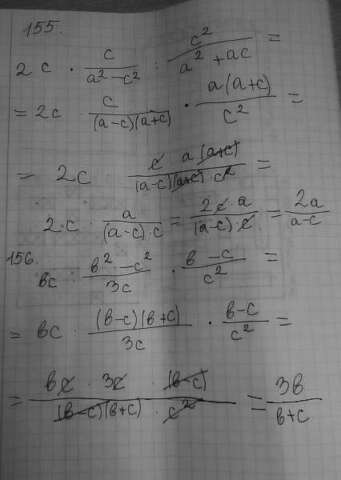 155.
2c · \frac{c}{a² - c²} : \frac{c²}{a² + ac} =
= 2c \frac{c}{(a-c)(a+c)} · \frac{a(a+c)}{c²} =
= 2c \frac{c a(a+c)}{(a-c)(a+c) c²} =
2·c · \frac{a}{(a-c)·c} = \frac{2c·a}{(a-c)·c} = \frac{2a}{a-c}
156.
вc : \frac{в² - c²}{3c} · \frac{в - c}{c²} =
= вc : \frac{(в-c)(в+c)}{3c} · \frac{в-c}{c²} =
= \frac{вc · 3c · (в-c)}{(в-c)(в+c) · c²} = \frac{3в}{в+c}